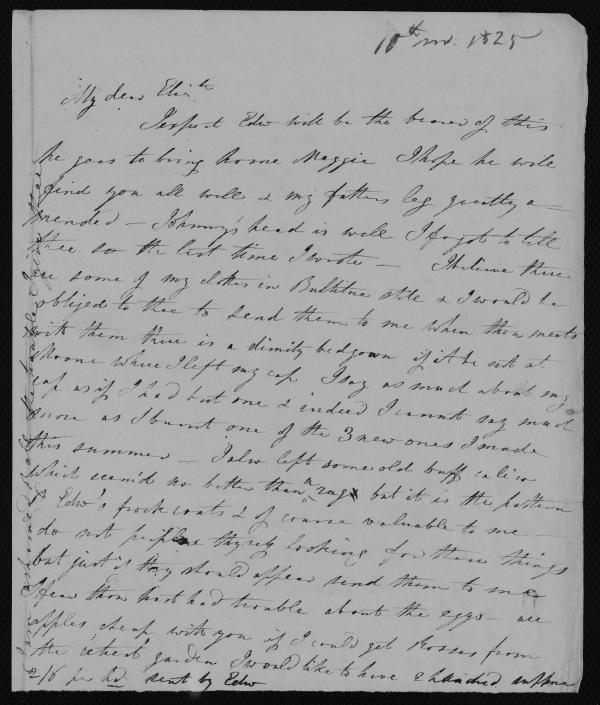 10th mo. 1825
My dear Elizth
I expect Edw will be the bearer of this
he goes to bring home Maggie I hope he will
find you all well & my fathers leg greatly a-
mended - Johnny's head is well I forgot to tell
thee so the last time I wrote - I believe there
are some of my clothes in Ballitore still & I would be
obliged to thee to send them to me when thou meets
with them there is a dimity bedgown if it be not at
Moone where I left my cap I say as much about my
cap as if I had but one & indeed I cannot say much
more as I burnt one of the 3 new ones I made
this summer - I also left some old buff calico
which seem'd no better than a rag but it is the pattern
of Edw's frock coats & of course valuable to me -
do not thyself looking for these things
but just if they should appear send them to me
I fear thou hast had trouble about the eggs - are
apples cheap with you if I could get from
the retreat garden I would like to have 2 hundred
2/6 per hd sent by Edw